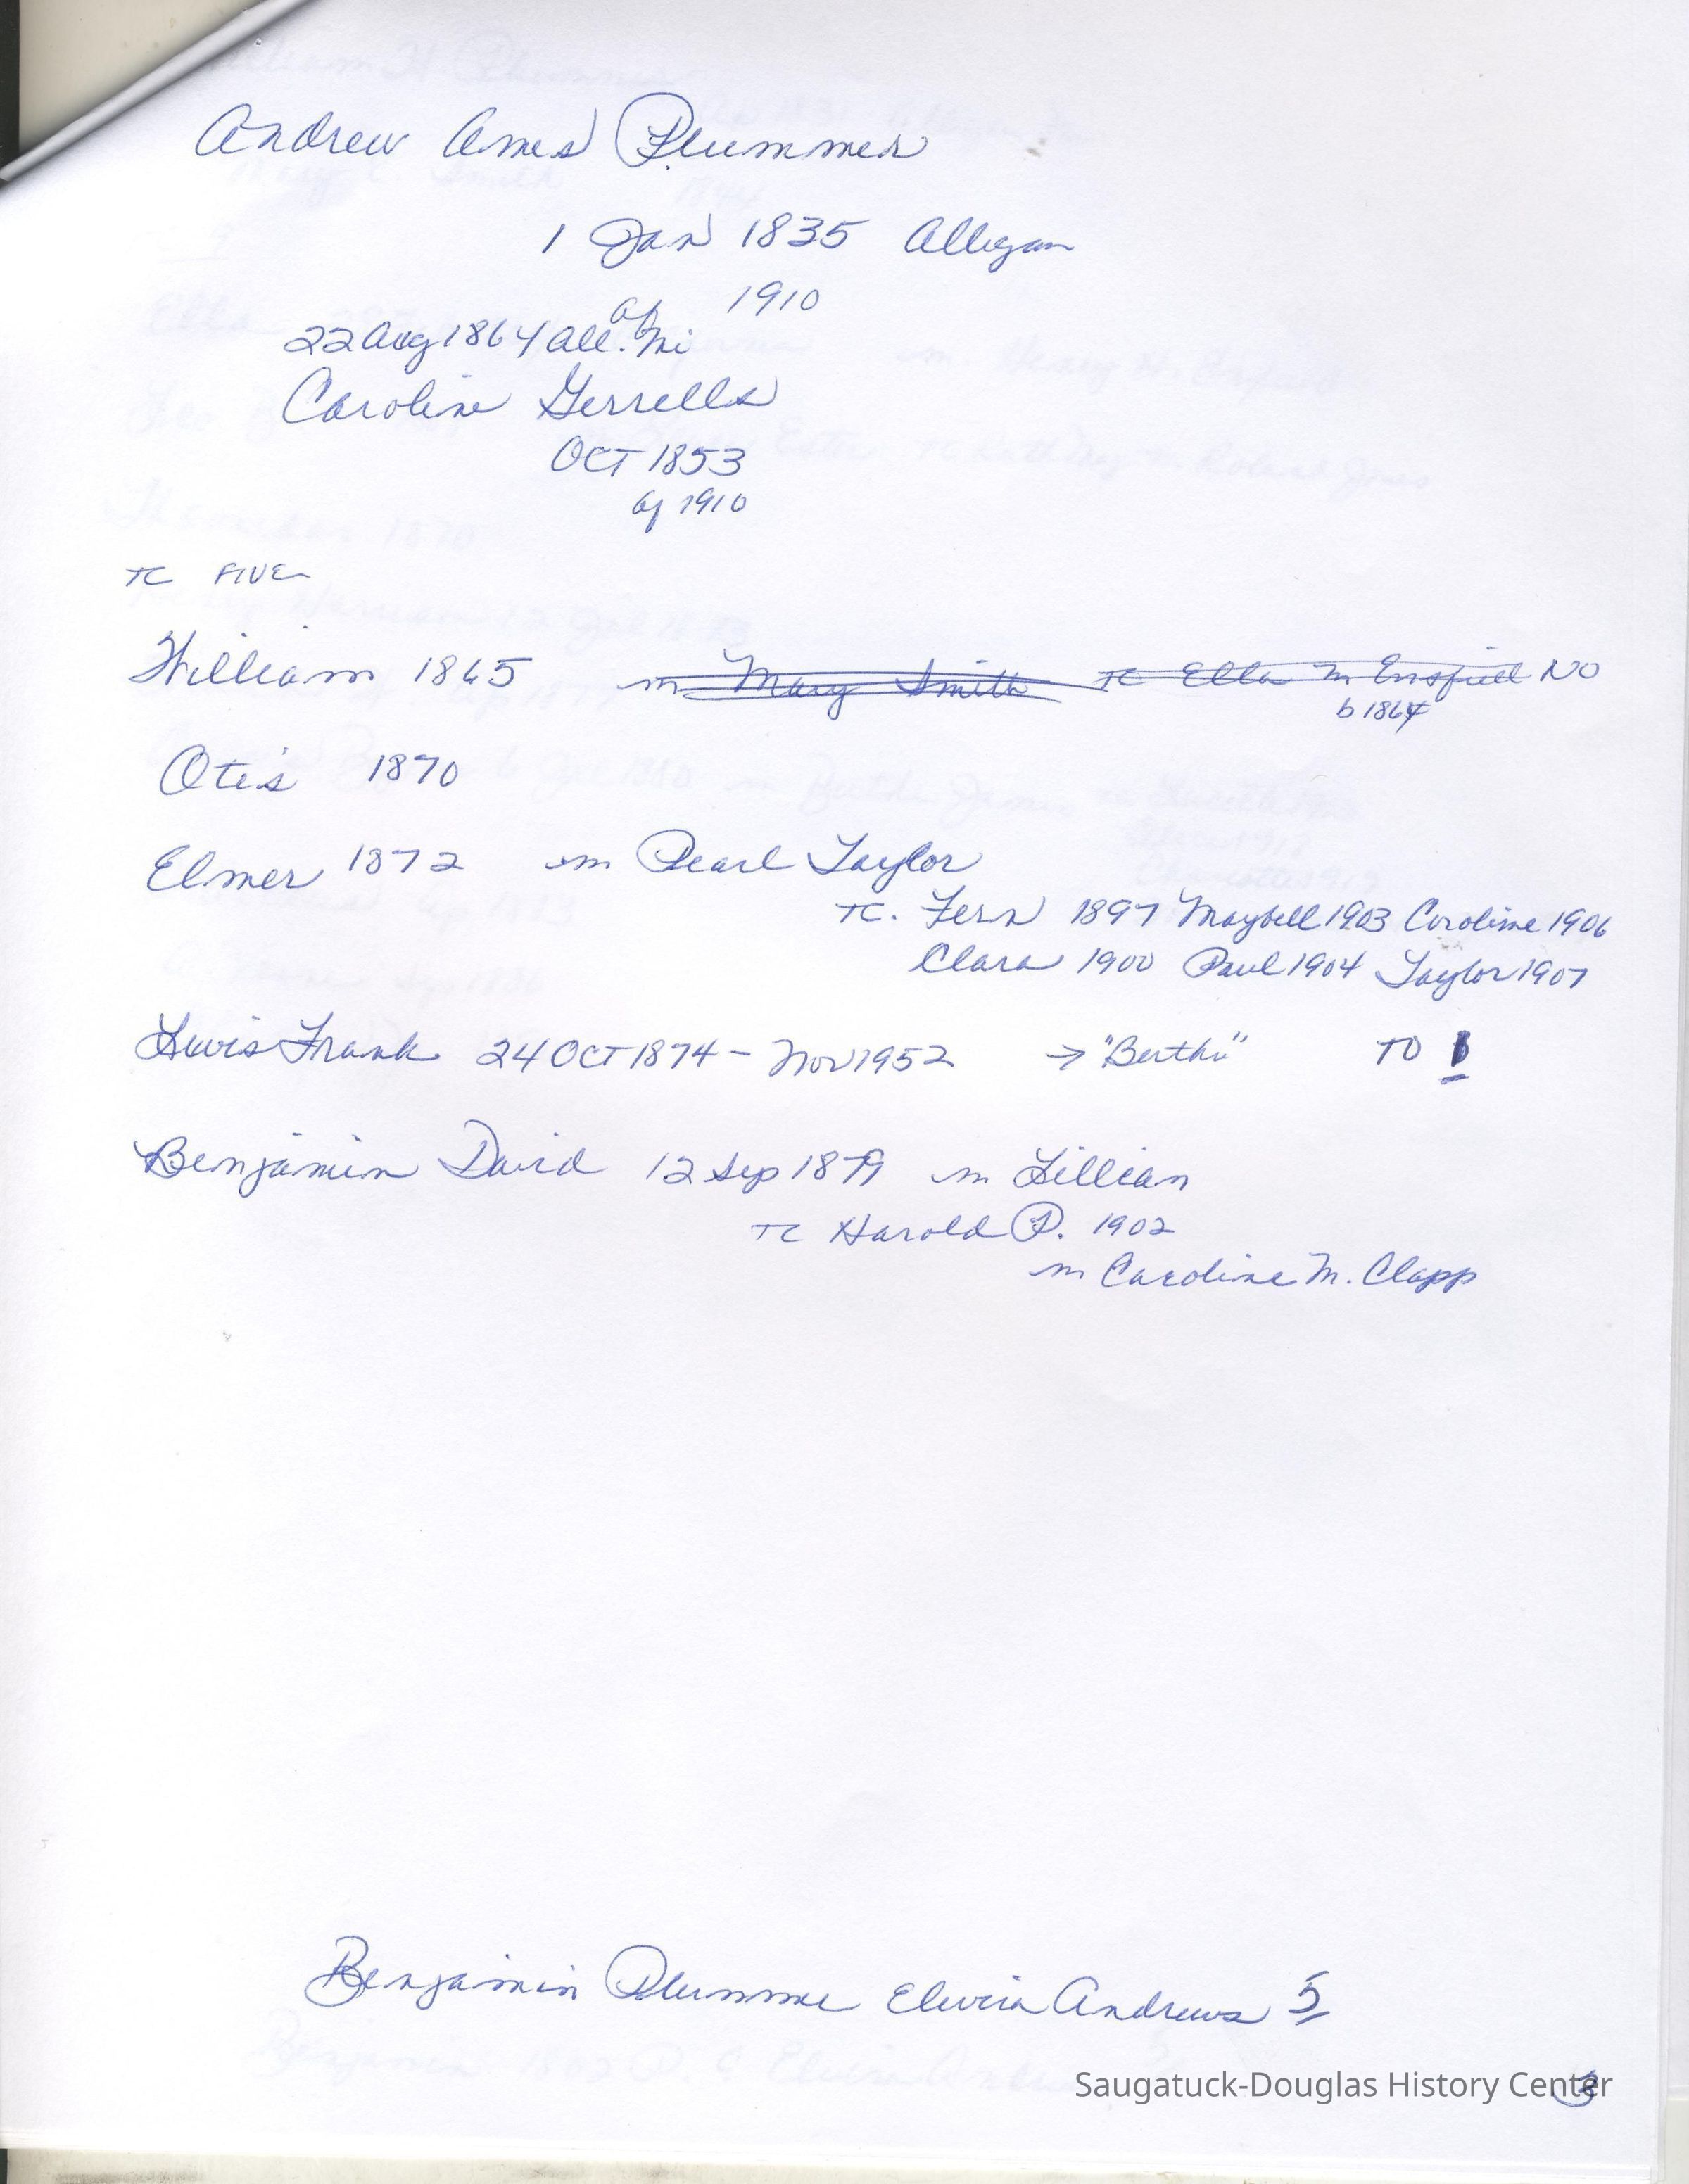 Andrew Ames Plummer
1 Jan 1835 Allegan
af 1910
22 Aug 1864 All. Mi
Caroline Gerrells
OCT 1853
af 1910
TC FIVE
William 1865 m Mary Smith TC Ella m Ensfield NO
b 1864
Otis 1870
Elmer 1872 m Pearl Taylor
TC. Fern 1897 Maybell 1903 Caroline 1906
Clara 1900 Paul 1904 Taylor 1907
Lewis Frank 24 OCT 1874 - Nov 1952 → "Bertha" TO 1
Benjamin David 12 Sep 1879 m Lillian
TC Harold P. 1902
m Caroline M. Clapp
Benjamin Plumme Elvira Andrews 5
Saugatuck-Douglas History Center